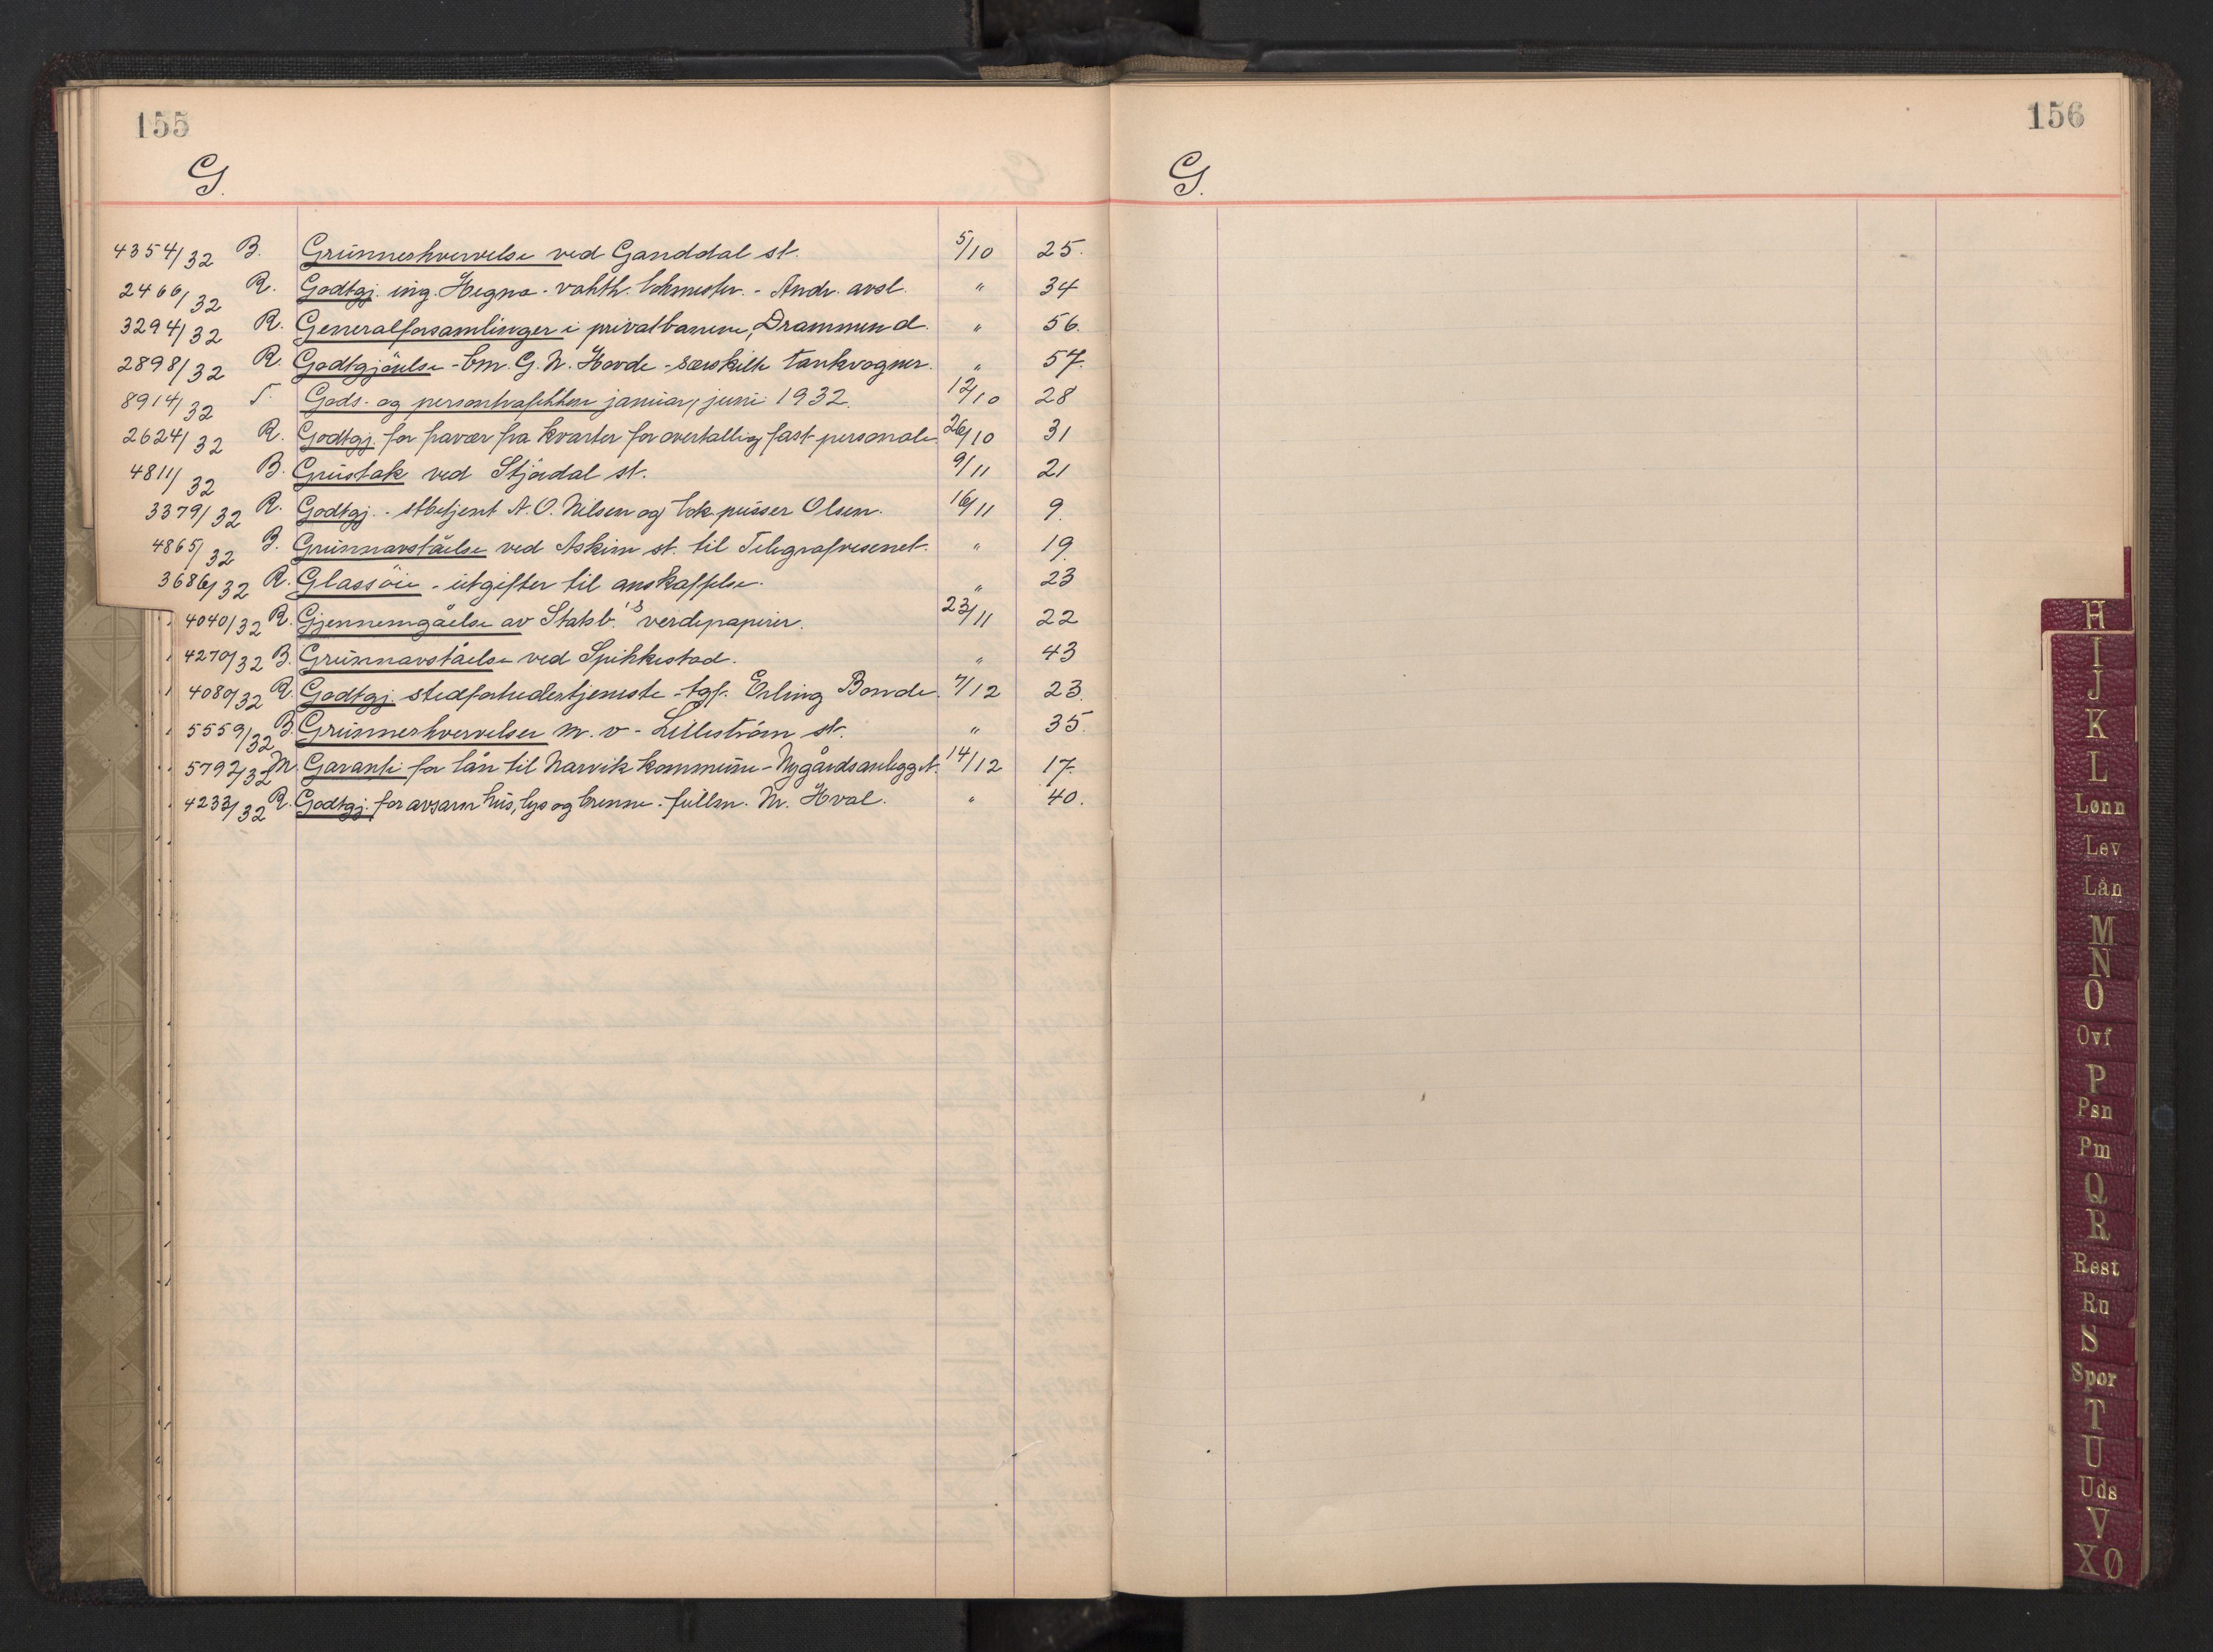 155
G.
4354/32 B. Grunnerhvervelse ved Ganddal st. 5/10 25.
2466/32 R. Godtgj. ing. Hegna - vakth. - Andr. avsl. " 34
3294/32 R. Generalforsamlinger i privatbanene, Drammen d. " 56.
2898/32 R. Godtgjörelse - bm. G. N. Hovde - særskilte tankvogner. " 57.
8914/32 T. Gods- og persontrafikken januar/juni 1932. 12/10 28
2624/32 R. Godtgj. for fravær fra kvarter for overtallig fast personale. 26/10 31
4811/32 B. Grustak ved Stjördal st. 9/11 21
3379/32 R. Godtgj. - stbetjent A. O. Nilsen og lok.pusser Olsen. 16/11 9.
4865/32 B. Grunnavståelse ved Askim st. til Telegrafvesenet. " 19.
3686/32 R. Glassöie - utgifter til anskaffelse. " 23
4040/32 R. Gjennemgåelse av Statsb.'s verdipapirer. 23/11 22
4270/32 B. Grunnavståelse ved Spikkestad. " 43
4080/32 R. Godtgj. stedfortredertjeneste - tgf. Erling Bonde. 7/12 23.
5559/32 B. Grunnerhvervelser m. v. - Lilleström st. " 35.
5792/32 M. Garanti for lån til Narvik kommune - Nygårdsanlegget. 14/12 17.
4233/32 R. Godtgj. for avsavn hus, lys og brenne - fullm. M. Hval. " 40.
156
G.
H
I
J
K
L
Lønn
Lev
Lån
M
N
O
Ovf
P
Psn
Pm
Q
R
Rest
Ru
S
Spor
T
U
Uds
V
XØ